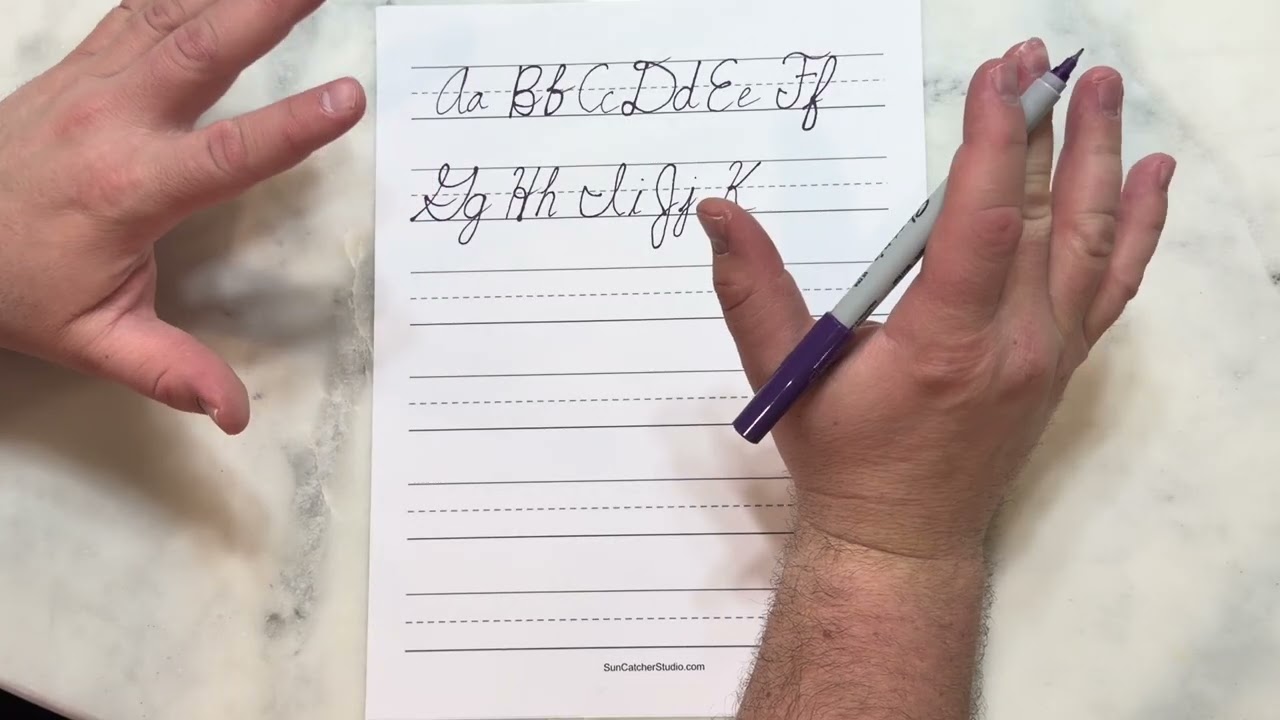 Aa Bb Cc Dd Ee Ff
Gg Hh Ii Jj K
SunCatcherStudio.com